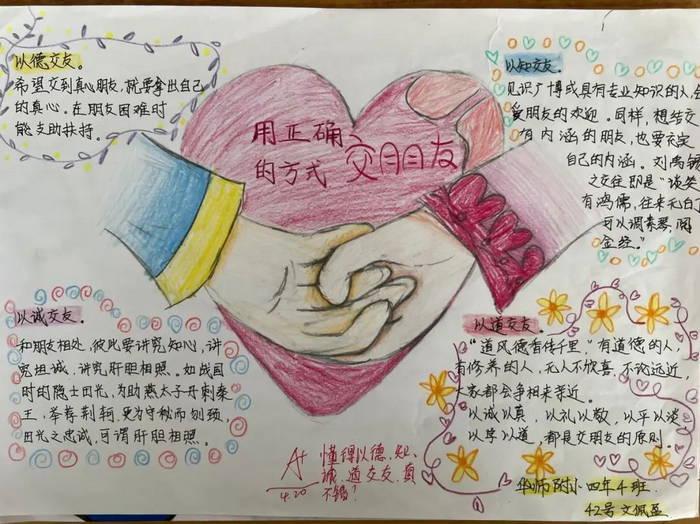 以德交友。
希望交到真心朋友,就要拿出自己
的真心。在朋友困难时
能支助扶持。
用正确
的方式
交朋友
以知交友。
见识广博或具有专业知识的人会
受朋友的欢迎。同样,想结交
有内涵的朋友,也要充实
自己的内涵。刘禹锡
之交往即是“谈笑
有鸿儒,往来无白丁
可以调素琴,阅
金经。”
以诚交友。
和朋友相处,彼此要讲究知心,讲
究坦诚,讲究肝胆相照。如战国
时的隐士田光,为助燕太子丹刺秦
王,举荐荆轲,更为守秘而刎颈,
田光之忠诚,可谓肝胆相照。
以道交友。
“道风德香传千里,”有道德的人,
有修养的人,无人不欣喜,不论远近,
大家都会争相来亲近。
以诚以真,以礼以敬,以平以淡
以学以道,都是交朋友的原则。
A+
4.20
懂得以德、知、
诚、道交友,真
不错!
华师附小四年4班
42号 文佩